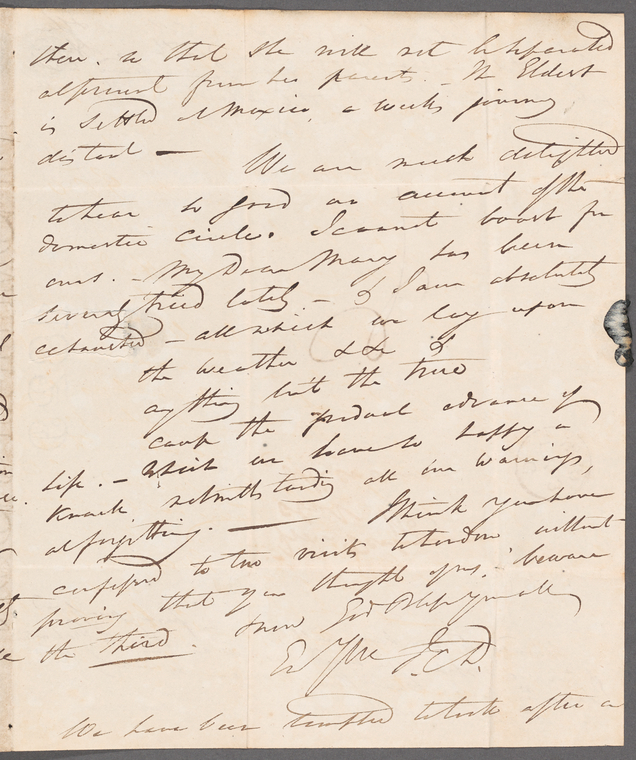 there. so that she will not be separated
altogether from her parents. — The Eldest
is settled at Mexico, a weeks journey
distant —
We are much delighted
to hear so good an account of the
domestic circle. I cannot boast for
ours. — My Dear Mary has been
severely tried lately — & I am absolutely
exhausted — all which we lay upon
the weather &c &c &
any thing but the true
cause the gradual advance of
life. — which we have so happy a
knack notwithstanding all our warnings,
of forgetting. — I think you have
confessed to two visits to London without
proving that you thought of us. — beware
the third. now God Bless you all
Er Yrs J.C.D.
We have been tempted to look after a